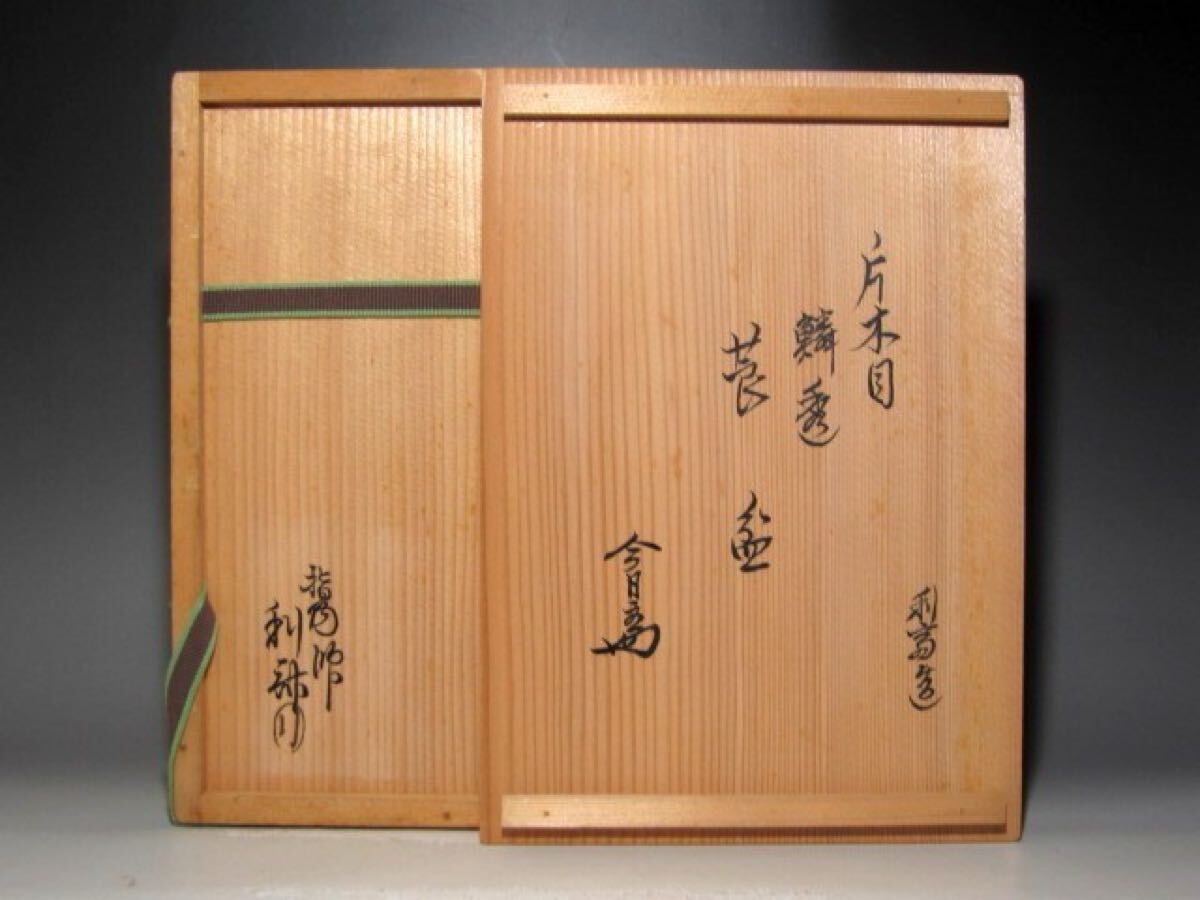 片木目
鱗透
莨盆
利斎造
今日庵
指物師
利斎